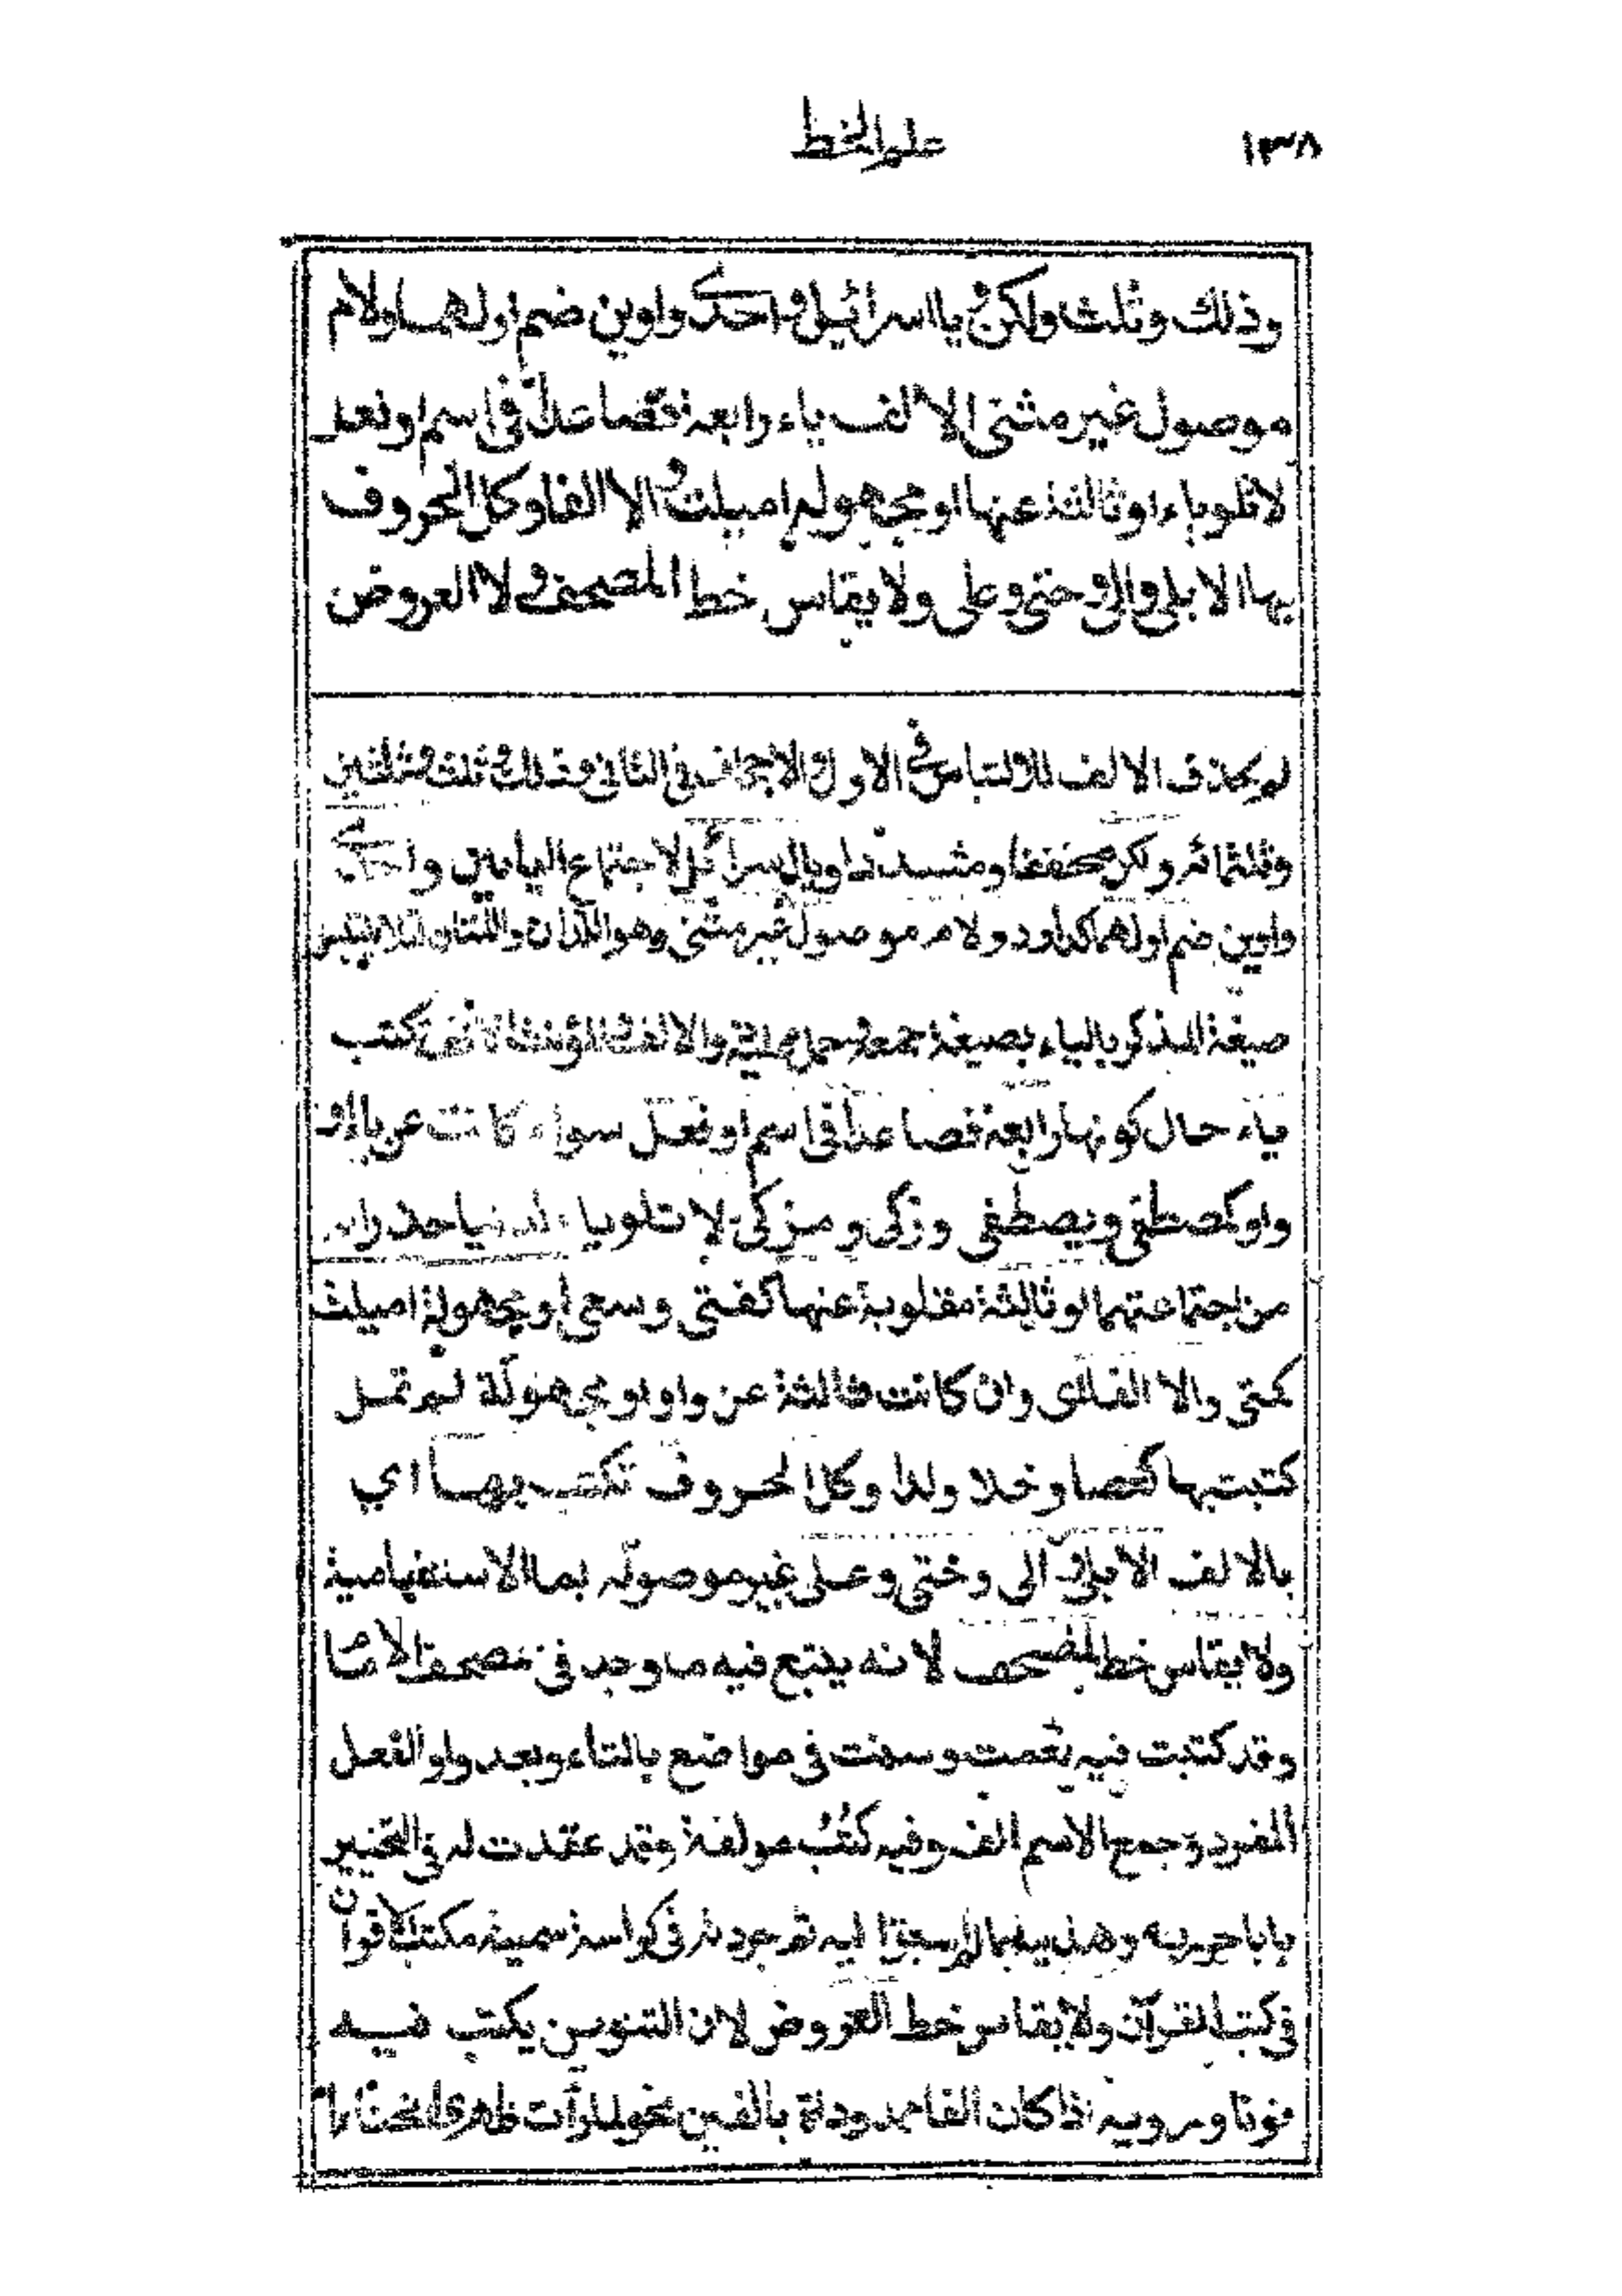 ١٣٨
علم الخط
وذلك وثلث ولكن ويا اسرائيل واحدى واوين ضم اولهما ولام
موصول غير مثنى الالف ياء رابعة فصاعدا فى اسم او فعل
لا تلو ياء او ثالثة عنها او مجهولة اميلت والا الفا وكل الحروف
بها الا بلى والى وحتى وعلى ولا يقاس خط المصحف ولا العروض
لم يحذف الالف للالتباس فى الاول والاجحاف فى الثانى وذلك وثلث وثلثين
وثلثمائة ولكن مخففا ومشددا ويا اسرائيل لاجتماع اليايين واحدى
واوين ضم اولهما كداود ولام موصول غير مثنى وهو اللذان واللتان لئلا يلتبس
صيغة المذكر بالياء بصيغة جمعه والالف تكتب
ياء حال كونها رابعة فصاعدا فى اسم او فعل سواء كانت عن ياء او
واو كمصطفى ويصطفى وزكى ومزكى لا تلو ياء حذرا
من اجتماعهما او ثالثة مقلوبة عنها كفتى وسعى او مجهولة اميلت
كمتى والا الفا وان كانت ثالثة عن واو او مجهولة لم تمل
كتبت بها كعصا وخلا ولدا وكل الحروف تكتب بها اى
بالالف الا بلى والى وحتى وعلى غير موصولة بما الاستفهامية
ولا يقاس خط المصحف لانه يتبع فيه ما وجد فى مصحف الامام
وقد كتبت فيه نعمت وسنت فى مواضع بالتاء وبعد واو الفعل
المفرد وجمع الاسم الف وفيه كتب مولفة وقد عقدت له فى التحبير
بابا حررته وهذبته بما لم اسبق اليه ثم جردته فى كراسة سميتها الاقران
فى كتب القرآن ولا يقاس خط العروض لان التنوين يكتب فيه
نونا ورويه اذا كان الفا ممدودة بالفين نحو